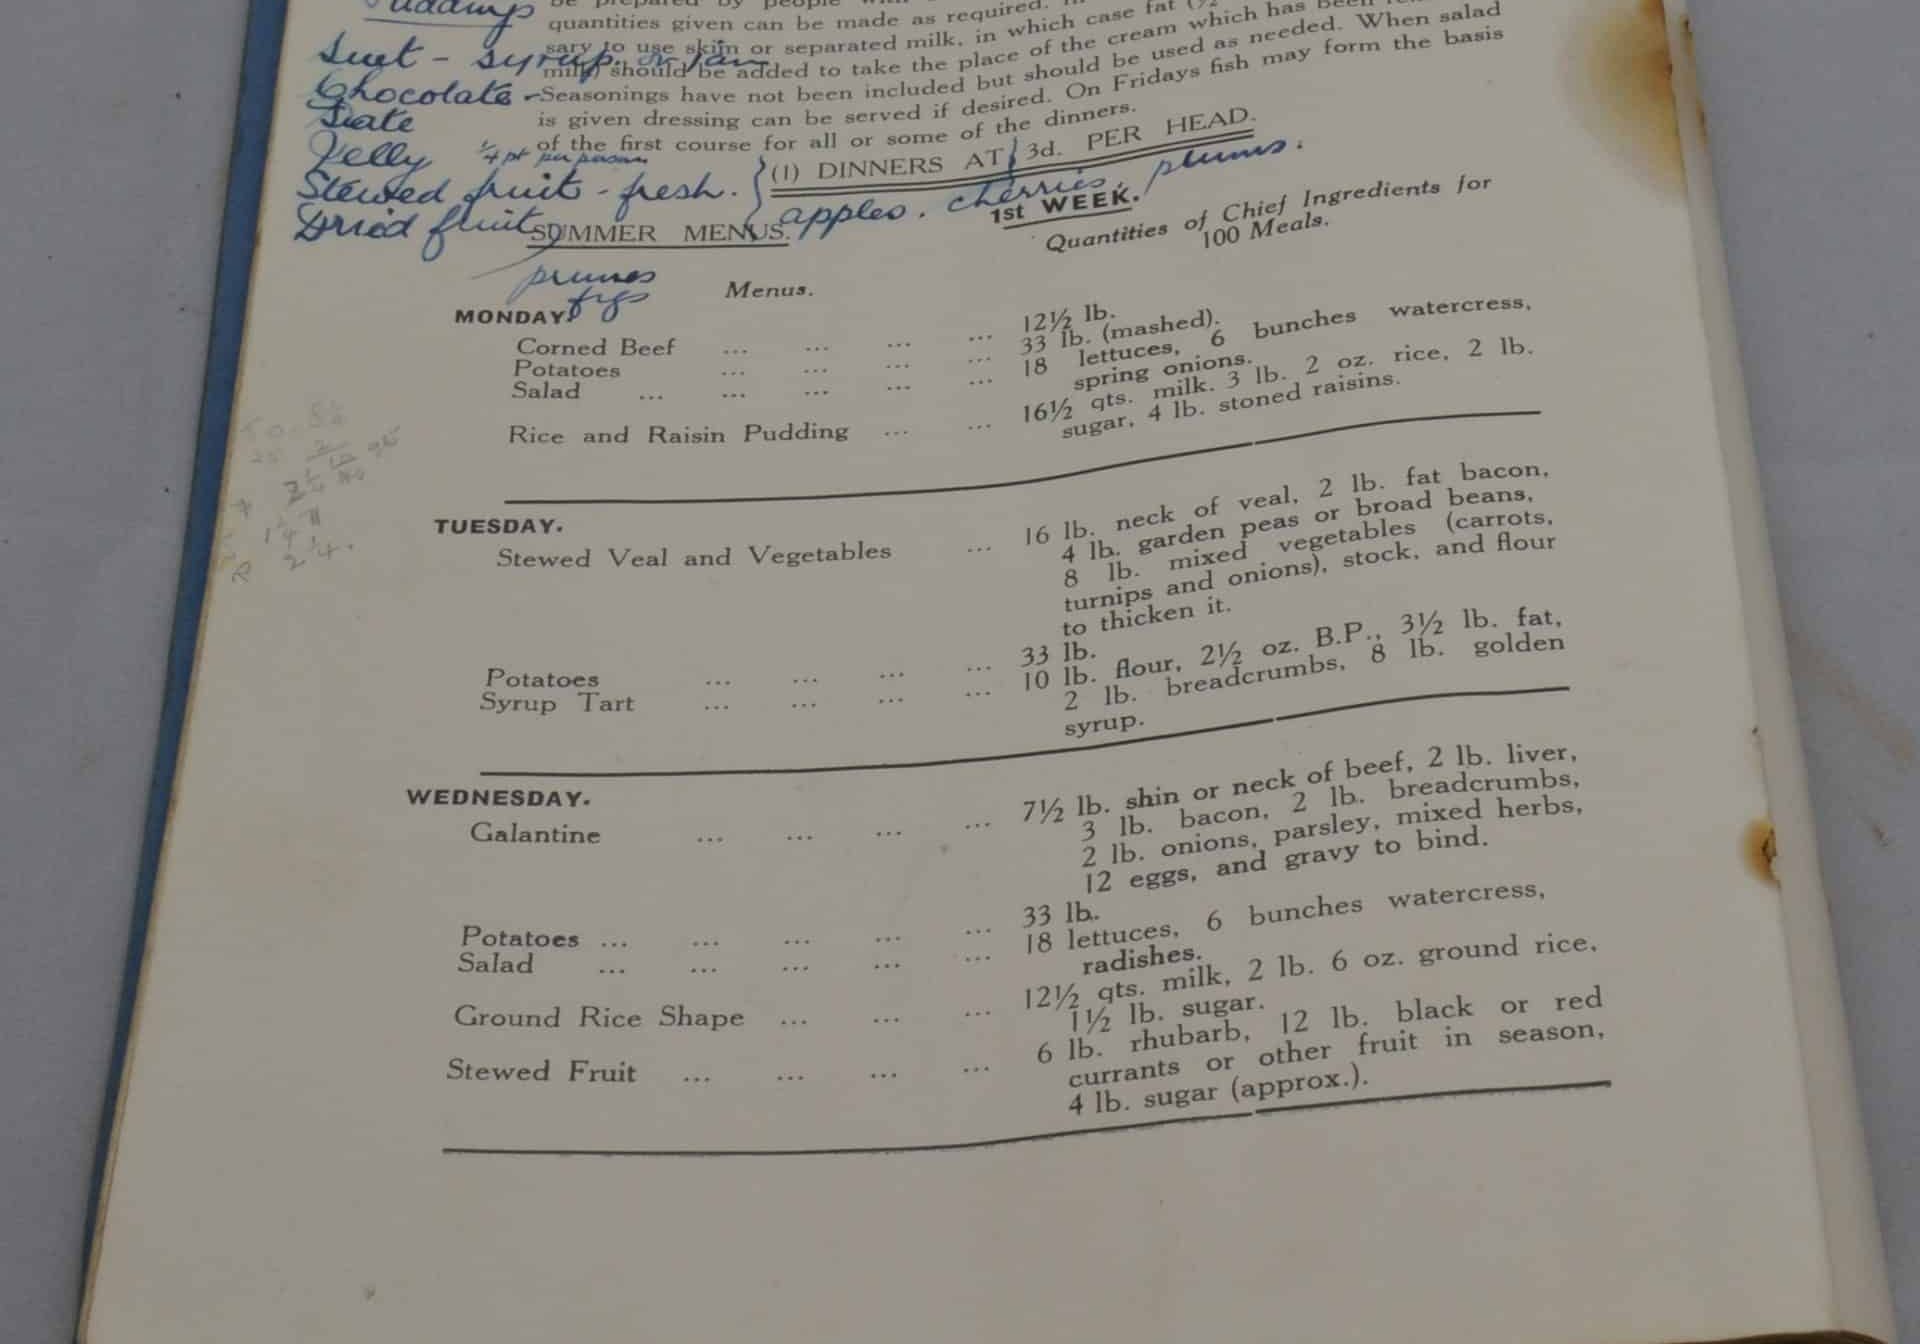 Puddings
be prepared by people
quantities given can be made as required.
sary to use skim or separated milk, in which case fat
milk) should be added to take the place of the cream which has been
Seasonings have not been included but should be used as needed. When salad
is given dressing can be served if desired. On Fridays fish may form the basis
of the first course for all or some of the dinners.
Suet - syrup. or jam
Chocolate -
Date
Jelly ¼ pt per person
Stewed fruit - fresh. } apples. cherries. plums.
Dried fruit
prunes
figs
(1) DINNERS AT 3d. PER HEAD.
1st WEEK.
SUMMER MENUS.
Quantities of Chief Ingredients for
100 Meals.
Menus.
MONDAY.
Corned Beef ... ... ... ... 12½ lb.
Potatoes ... ... ... ... 33 lb. (mashed).
Salad ... ... ... ... ... 18 lettuces, 6 bunches watercress,
spring onions.
Rice and Raisin Pudding ... ... 16½ qts. milk. 3 lb. 2 oz. rice, 2 lb.
sugar, 4 lb. stoned raisins.
TUESDAY.
Stewed Veal and Vegetables ... 16 lb. neck of veal, 2 lb. fat bacon,
4 lb. garden peas or broad beans,
8 lb. mixed vegetables (carrots,
turnips and onions), stock, and flour
to thicken it.
Potatoes ... ... ... ... 33 lb.
Syrup Tart ... ... ... ... 10 lb. flour, 2½ oz. B.P., 3½ lb. fat,
2 lb. breadcrumbs, 8 lb. golden
syrup.
WEDNESDAY.
Galantine ... ... ... ... 7½ lb. shin or neck of beef, 2 lb. liver,
3 lb. bacon, 2 lb. breadcrumbs,
2 lb. onions, parsley, mixed herbs,
12 eggs, and gravy to bind.
Potatoes ... ... ... ... ... 33 lb.
Salad ... ... ... ... ... 18 lettuces, 6 bunches watercress,
radishes.
Ground Rice Shape ... ... ... 12½ qts. milk, 2 lb. 6 oz. ground rice,
1½ lb. sugar.
Stewed Fruit ... ... ... ... 6 lb. rhubarb, 12 lb. black or red
currants or other fruit in season,
4 lb. sugar (approx.).